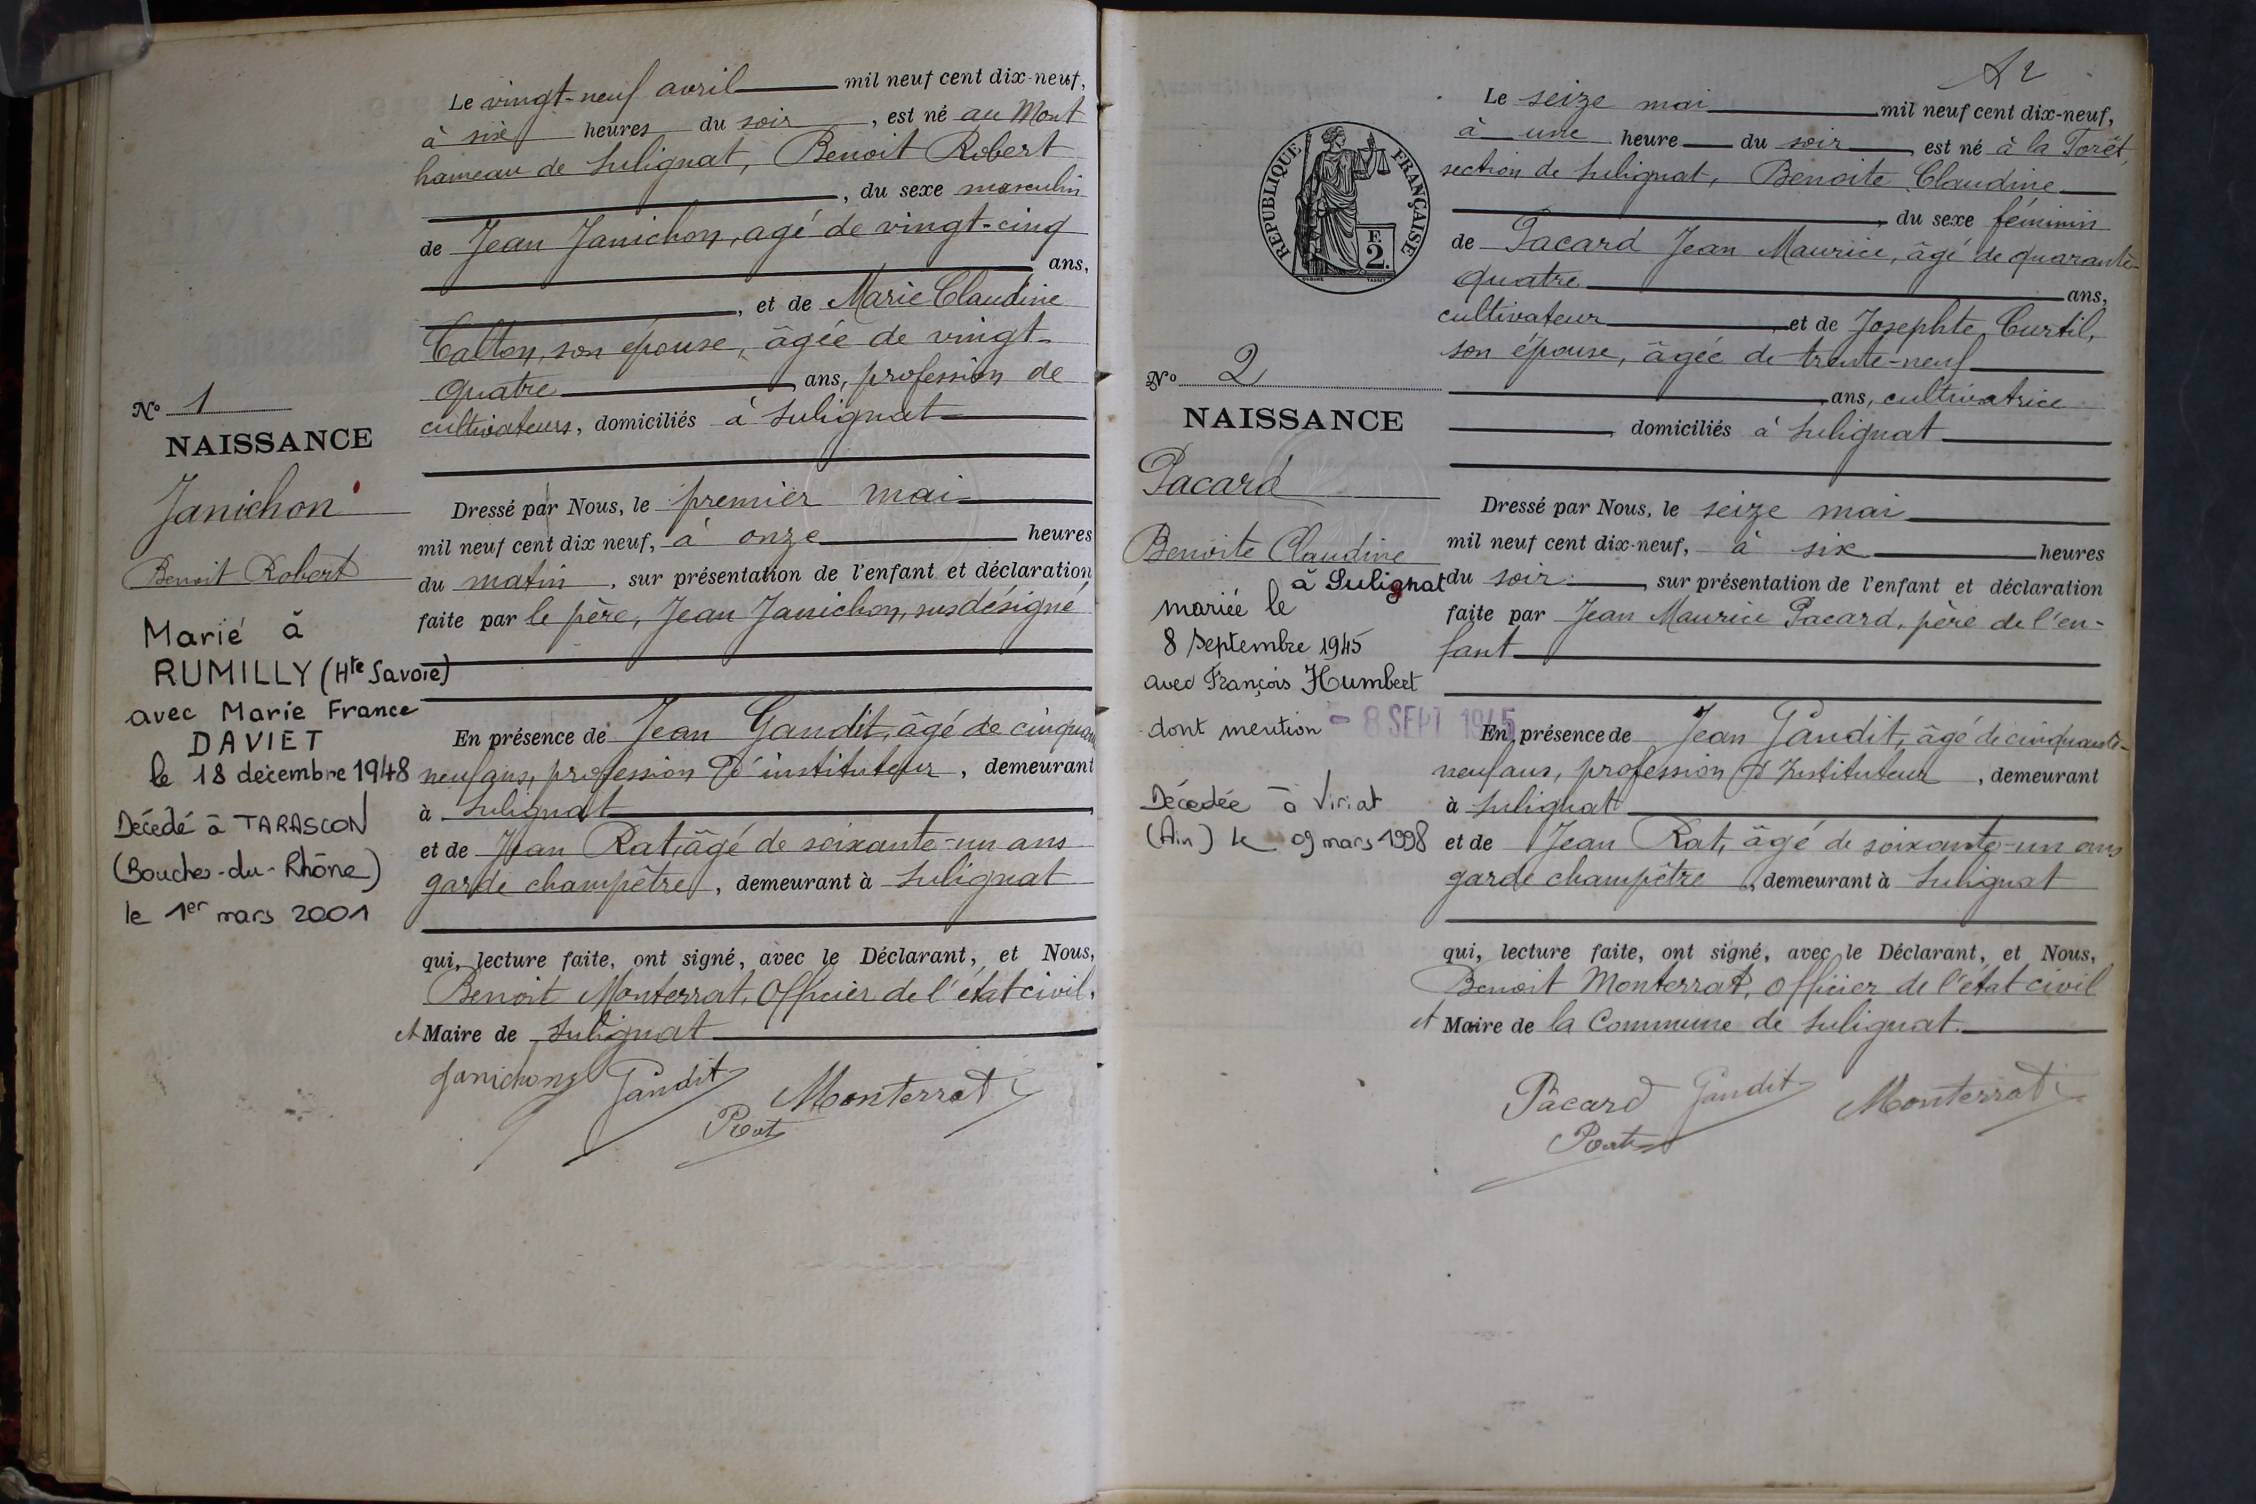 Le vingt-neuf avril mil neuf cent dix-neuf,
à six heures du soir, est né au Mont
hameau de Sulignat, Benoit Robert
, du sexe masculin
de Jean Janichon, agé de vingt-cinq
ans,
, et de Marie Claudine
son épouse, âgée de vingt-
quatre ans, profession de
cultivateurs, domiciliés à Sulignat
Nº 1
NAISSANCE
Janichon
Benoit Robert
Marié à
RUMILLY (Hte Savoie)
avec Marie France
DAVIET
le 18 décembre 1948
Décédé à TARASCON
(Bouches-du-Rhône)
le 1er mars 2001
Dressé par Nous, le premier mai
mil neuf cent dix neuf, à onze heures
du matin, sur présentation de l'enfant et déclaration
faite par le père, Jean Janichon, susdésigné
En présence de Jean Gaudit, âgé de cinquante
neuf ans, profession d'instituteur, demeurant
à Sulignat
et de Jean Rat, âgé de soixante-un ans
garde champêtre, demeurant à Sulignat
qui, lecture faite, ont signé, avec le Déclarant, et Nous,
Benoit Monterrat, Officier de l'état civil,
et Maire de Sulignat
Janichon Gaudit Monterrat
Rat
A 2
RÉPUBLIQUE FRANÇAISE
F.
2.
Le seize mai mil neuf cent dix-neuf,
à une heure du soir, est né à la Forêt,
section de Sulignat, Benoite Claudine
, du sexe féminin
de Pacard Jean Maurice, âgé de quarante-
quatre ans,
cultivateur, et de Josephte Curtil,
son épouse, âgée de trente-neuf
ans, cultivatrice
, domiciliés à Sulignat
Nº 2
NAISSANCE
Pacard
Benoite Claudine
à Sulignat
mariée le
8 Septembre 1945
avec François Humbert
dont mention - 8 SEPT 1945
Décédée à Viriat
(Ain) le 09 mars 1998
Dressé par Nous, le seize mai
mil neuf cent dix-neuf, à six heures
du soir, sur présentation de l'enfant et déclaration
faite par Jean Maurice Pacard, père de l'en-
fant
En présence de Jean Gaudit, âgé de cinquante-
neuf ans, profession d'Instituteur, demeurant
à Sulignat
et de Jean Rat, âgé de soixante-un ans
garde champêtre, demeurant à Sulignat
qui, lecture faite, ont signé, avec le Déclarant, et Nous,
Benoit Monterrat, Officier de l'état civil
et Maire de la Commune de Sulignat.
Pacard Gaudit Monterrat
Rat